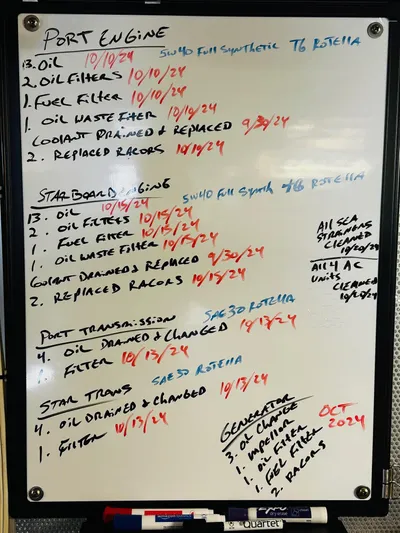 PORT ENGINE
13. OIL 10/10/24 5W40 Full Synthetic T6 ROTELLA
2. OIL FILTERS 10/10/24
1. FUEL FILTER 10/10/24
1. OIL WASTE FILTER 10/10/24
COOLANT DRAINED & REPLACED 9/30/24
2. REPLACED RACORS 10/10/24
STARBOARD ENGINE
13. OIL 10/15/24 5W40 Full Synth T6 ROTELLA
2. OIL FILTERS 10/15/24
1. FUEL FILTER 10/15/24
1. OIL WASTE FILTER 10/15/24
COOLANT DRAINED & REPLACED 9/30/24
2. REPLACED RACORS 10/15/24
All SEA
STRAINORS
CLEANED
10/20/24
All 4 AC
UNITS
CLEANED
10/20/24
PORT TRANSMISSION SAE30 ROTELLA
4. OIL DRAINED & CHANGED 10/13/24
1. FILTER 10/13/24
STAR TRANS SAE30 ROTELLA
4. OIL DRAINED & CHANGED 10/13/24
1. FILTER 10/13/24
GENERATOR
OCT
2024
3. OIL CHANGE
1. IMPELLOR
1. OIL FILTER
1. FUEL FILTER
2. RACORS
EXPO
Quartet